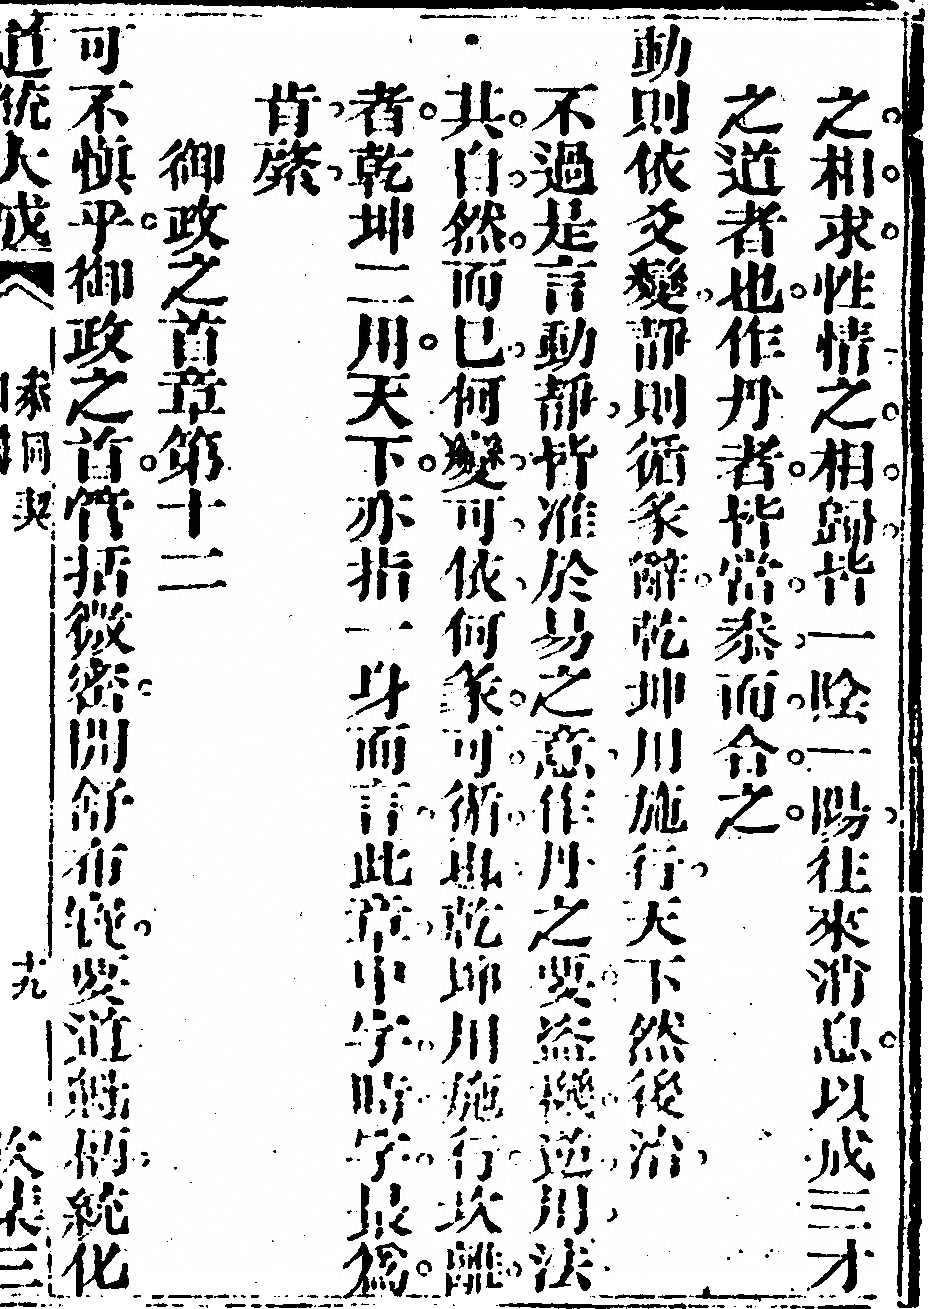 之相求性情之相歸皆一陰一陽往來消息以成三才
之道者也作丹者皆當叅而合之
動則依爻變靜則循彖辭乾坤用施行天下然後治
不過是言動靜皆准於易之意作丹之要盜機逆用法
其自然而已何變可依何彖可循也乾坤用施行坎離
者乾坤二用天下亦指一身而言此章中字時字最爲
肯綮
御政之首章第十二
可不慎乎御政之首管括微密開舒布寶要道魁柄統化
道統大成
叅同契
十九
次集三